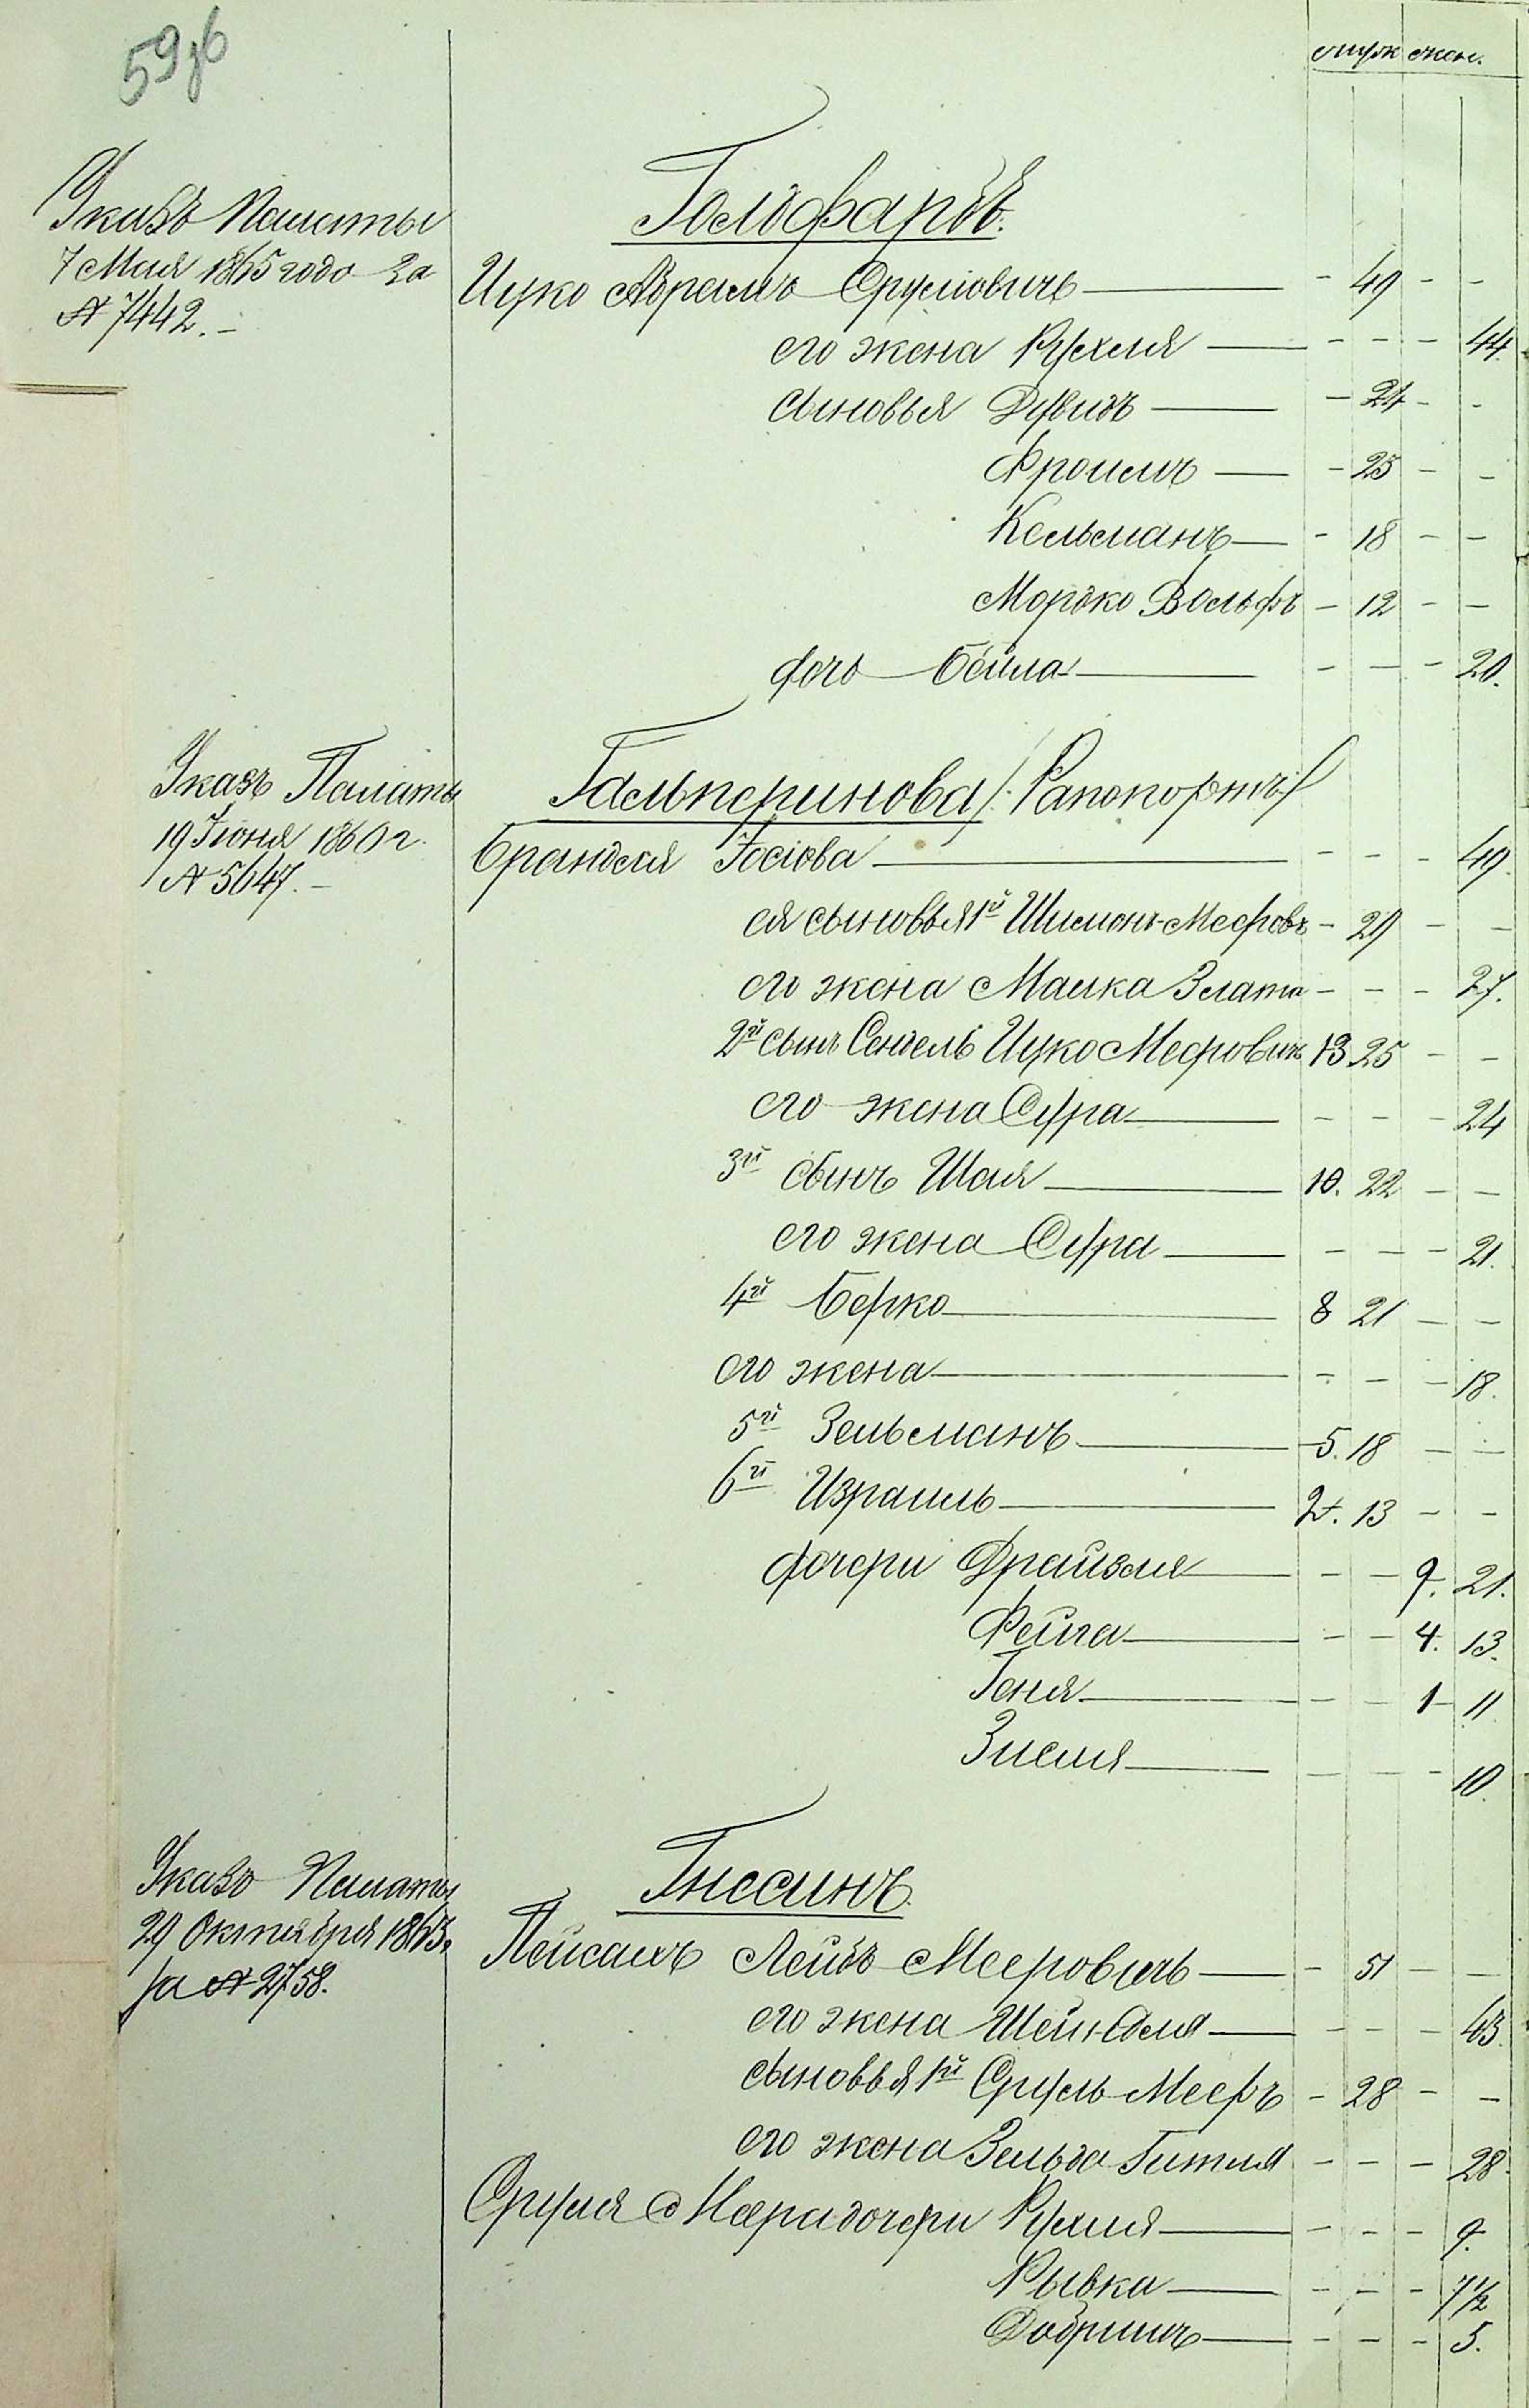 59об
муж жен.
Указъ Палаты
7 Мая 1865 года за
№ 7442.
Голдфарбъ.
Ицко Абрамъ Сруліовичъ — - 49 - -
его жена Рухля — - - - 44
сыновья Дувидъ — - 24 - -
Фроимъ — - 23 - -
Кельманъ — - 18 - -
Мордко Вольфъ - 12 - -
дочь Бейла — - - - 20.
Указъ Палаты
19 Іюня 1860 г.
№ 5647.
Гальперинова /: Рапопортъ :/
Брандля Іосіова — - - - 49.
ея сыновья 1й Шимонъ-Мееровъ - 29 - -
его жена Малка Злата - - - 27.
2й сынъ Сендель Ицко Мееровичъ 13 25 - -
его жена Сура — - - - 24
3й сынъ Шая — 10. 22 - -
его жена Сура — - - - 21.
4й Берко — 8 21 - -
его жена — - - - 18.
5й Зельманъ — 5. 18 - -
6й Израиль — 2. 13 - -
дочери Драйзля — - - 9. 21.
Фейга — - - 4. 13.
Геня — - - 1 11
Зисля — - - - 10.
Указъ Палаты
29 Октября 1863
за № 2758.
Гнессинъ.
Пейсахъ Лейбъ Мееровичъ — - 51 - -
его жена Шейндля — - - - 43.
сыновья 1й Сруль-Мееръ - 28 - -
его жена Зельда Гитля - - - 28.
Сруля Меера дочери Рухля — - - - 9.
Рывка — - - - 7½
Добришъ — - - - 5.